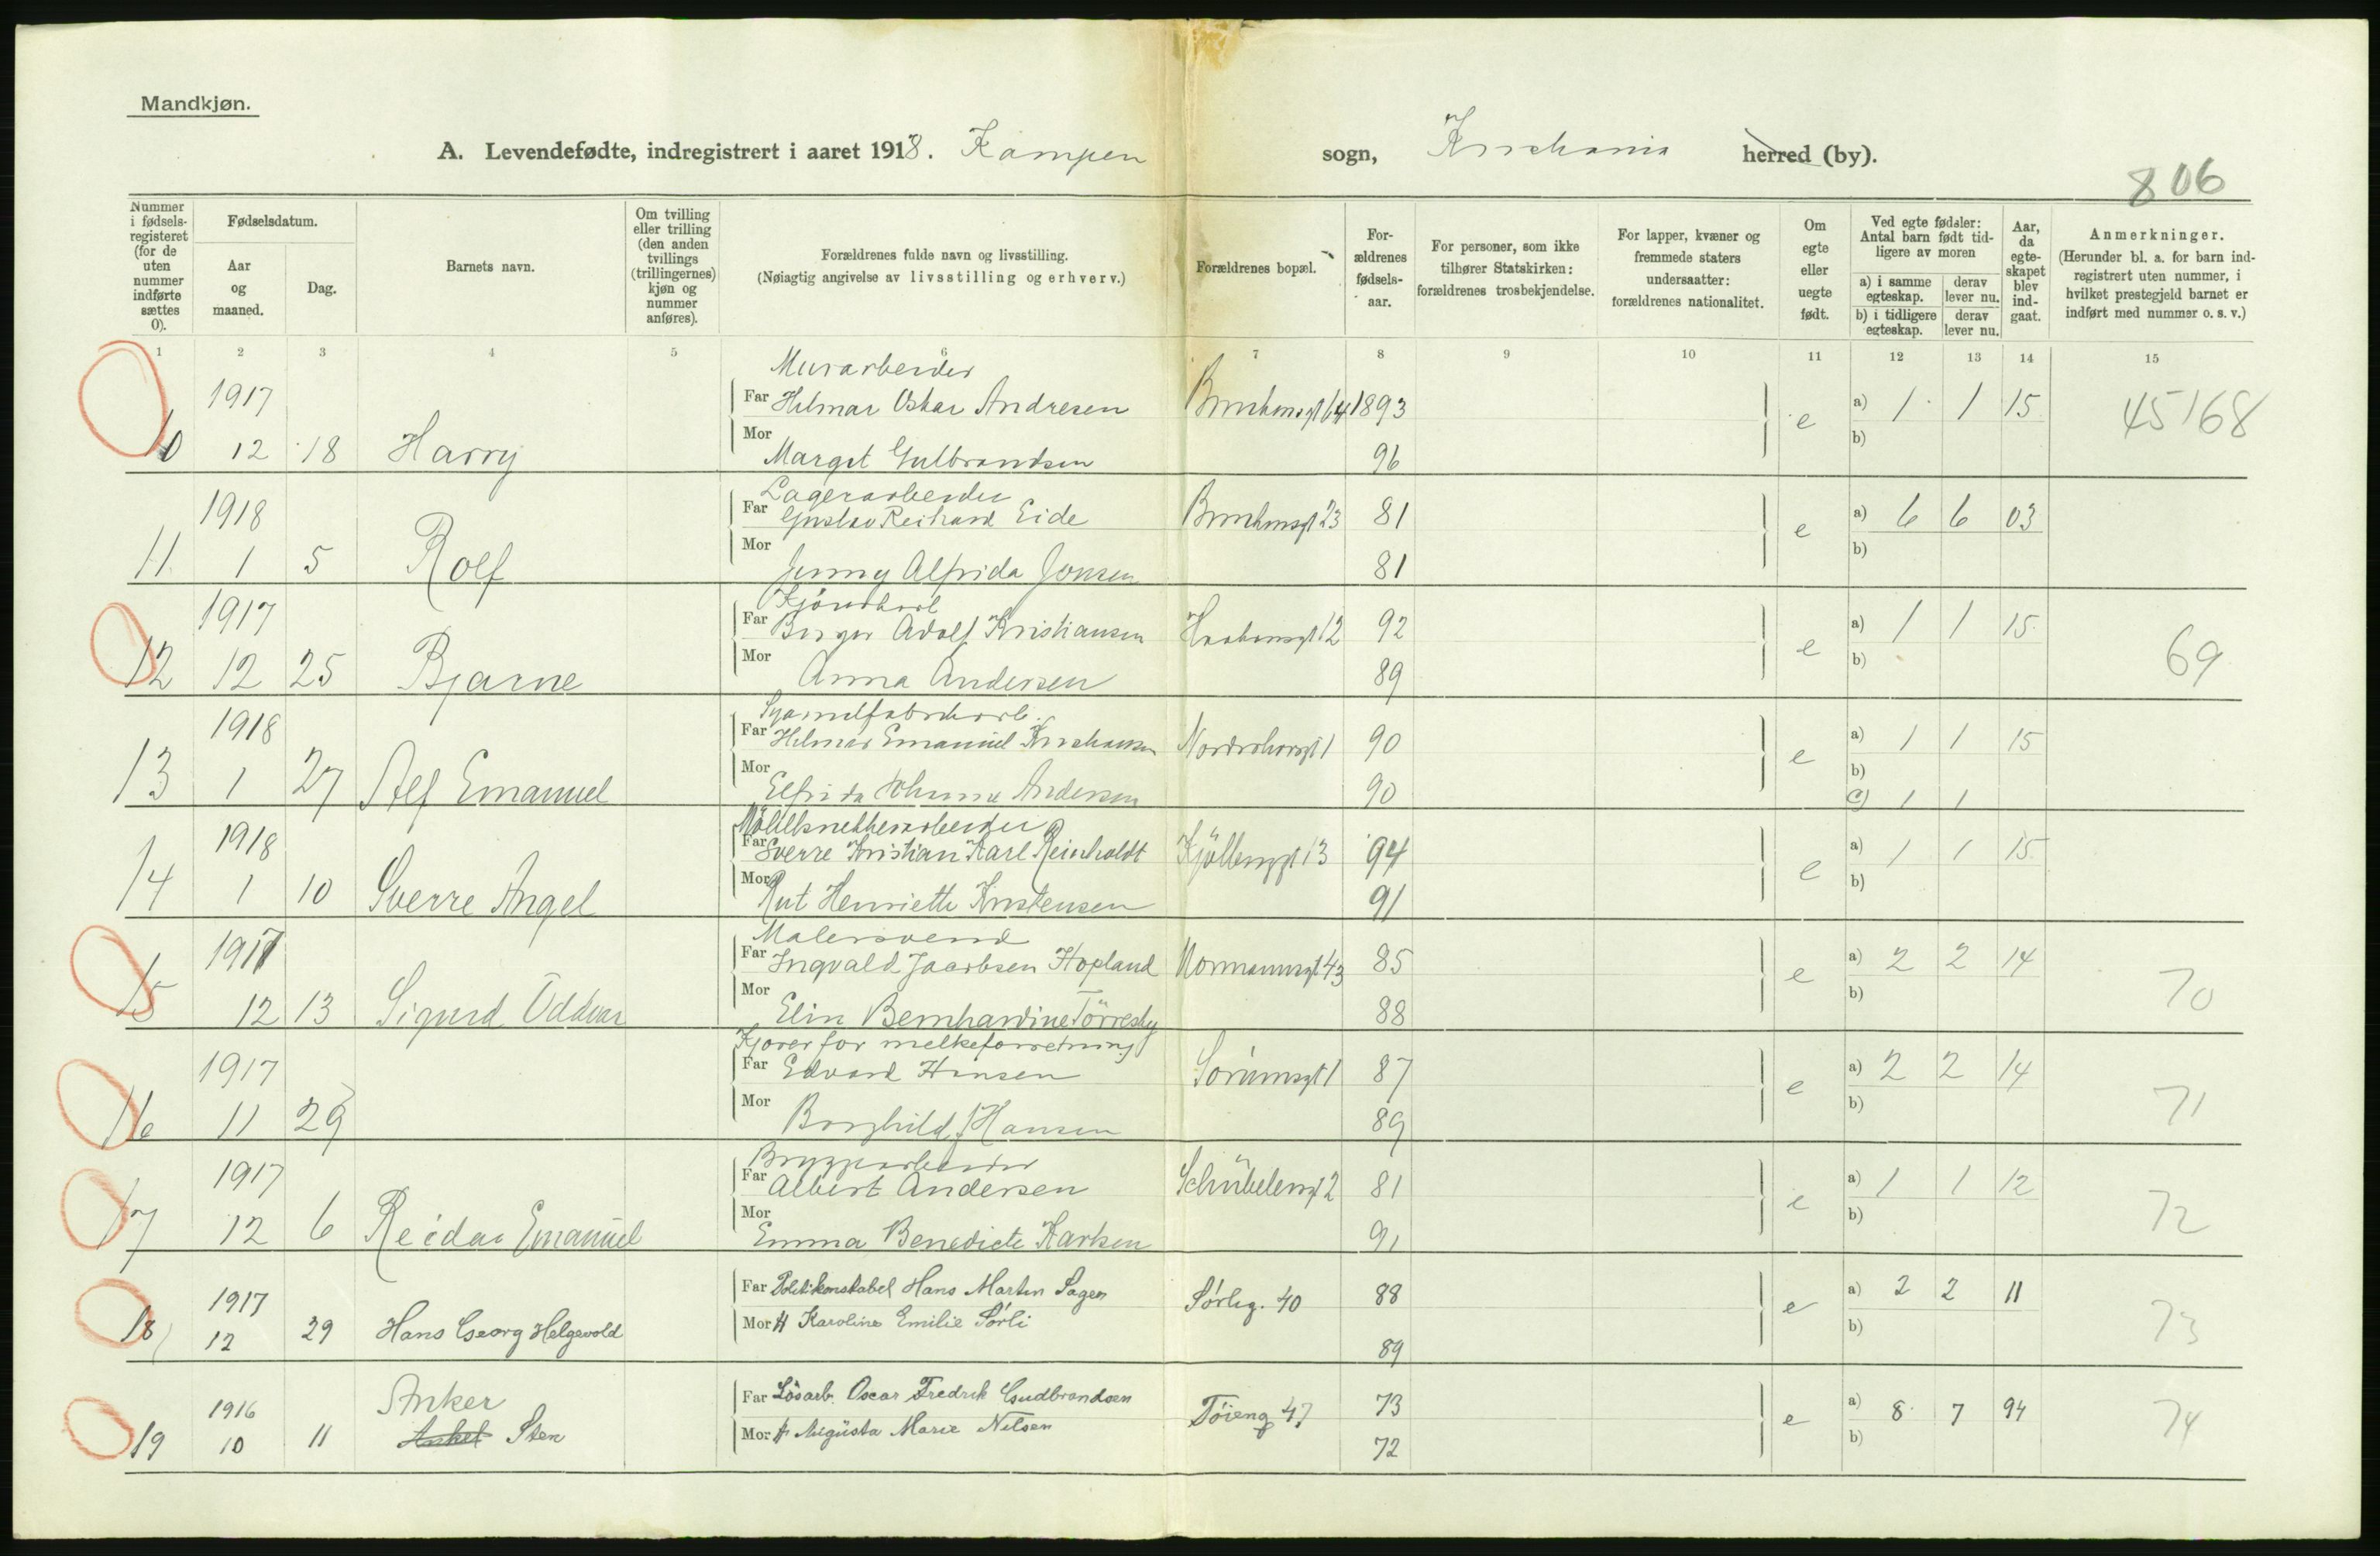 Mandkjøn.
A. Levendefødte, indregistrert i aaret 1918. Kampen sogn, Kristiania herred (by).
806
Nummer i fødsels-registeret (for de uten nummer indførte sættes 0).
Fødselsdatum.
Aar og maaned.
Dag.
Barnets navn.
Om tvilling eller trilling (den anden tvillings (trillingernes) kjøn og nummer anføres).
Forældrenes fulde navn og livsstilling.
(Nøiagtig angivelse av livsstilling og erhverv.)
Forældrenes bopæl.
For-ældrenes fødsels-aar.
For personer, som ikke tilhører Statskirken: forældrenes trosbekjendelse.
For lapper, kvæner og fremmede staters undersaatter: forældrenes nationalitet.
Om egte eller uegte født.
Ved egte fødsler: Antal barn født tid-ligere av moren
a) i samme egteskap. derav lever nu.
b) i tidligere egteskap. derav lever nu.
Aar, da egte-skapet blev ind-gaat.
Anmerkninger.
(Herunder bl. a. for barn ind-registrert uten nummer, i hvilket prestegjeld barnet er indført med nummer o. s. v.)
1 2 3 4 5 6 7 8 9 10 11 12 13 14 15
Murarbeider
1917 Far Hilmar Oskar Andresen 64 1893 e a) 1 1 15 45168
10 12 18 Harry Mor Margit Gulbrandsen 96 b)
Lagerarbeider
1918 Far Gustav Reihard Eide 23 81 e a) 6 6 03
11 1 5 Rolf Mor Jenny Alfrida Jonsen 81 b)
1917 Far Birger Adolf Kristiansen 12 92 e a) 1 1 15 69
12 12 25 Bjarne Mor Anna Andersen 89 b)
1918 Far Hilmar Emanuel Kristiansen 1 90 e a) 1 1 15
13 1 27 Alf Emanuel Mor Elfrida Andersen 90 b)
c) 1 1
1918 Far Sverre Kristian Karl Reinholdt 13 94 e a) 1 1 15
14 1 10 Sverre Angel Mor Rut Henriette Kristensen 91 b)
Malersvend
1917 Far Ingvald Jacobsen Hopland Normannsgt 43 85 e a) 2 2 14 70
15 12 13 Sigurd Oddvar Mor Elin Bernhardine Törresby 88 b)
Kjører for melkeforretning
1917 Far Edvard Hansen Sörumsgt 1 87 e a) 2 2 14 71
16 11 29 Mor Borghild Hansen 89 b)
Bryggearbeider
1917 Far Albert Andersen Schübelersgt 2 81 e a) 1 1 12 72
17 12 6 Reidar Emanuel Mor Emma Benedicte Karlsen 91 b)
1917 Far Politikonstabel Hans Martin Sagen Sörlig. 40 88 e a) 2 2 11 73
18 12 29 Hans Georg Helgevold Mor H Karoline Emilie Sörli 89 b)
Anker
1916 Far Lösarb. Oscar Fredrik Gudbrandsen Töieng 47 73 e a) 8 7 94 74
19 10 11 Sten Mor H Augusta Marie Nilsen 72 b)